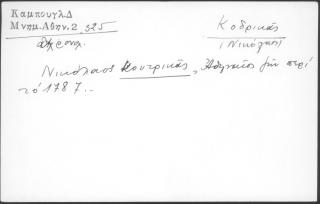 Καμπουγλ.Δ
Μνημ.Αθην.2 325
Κοδρικάς
(Νικόλαος)
Νικόλαος Κουτρικάς, Ἀθηναῖος ζῶν περὶ
τὸ 1787..